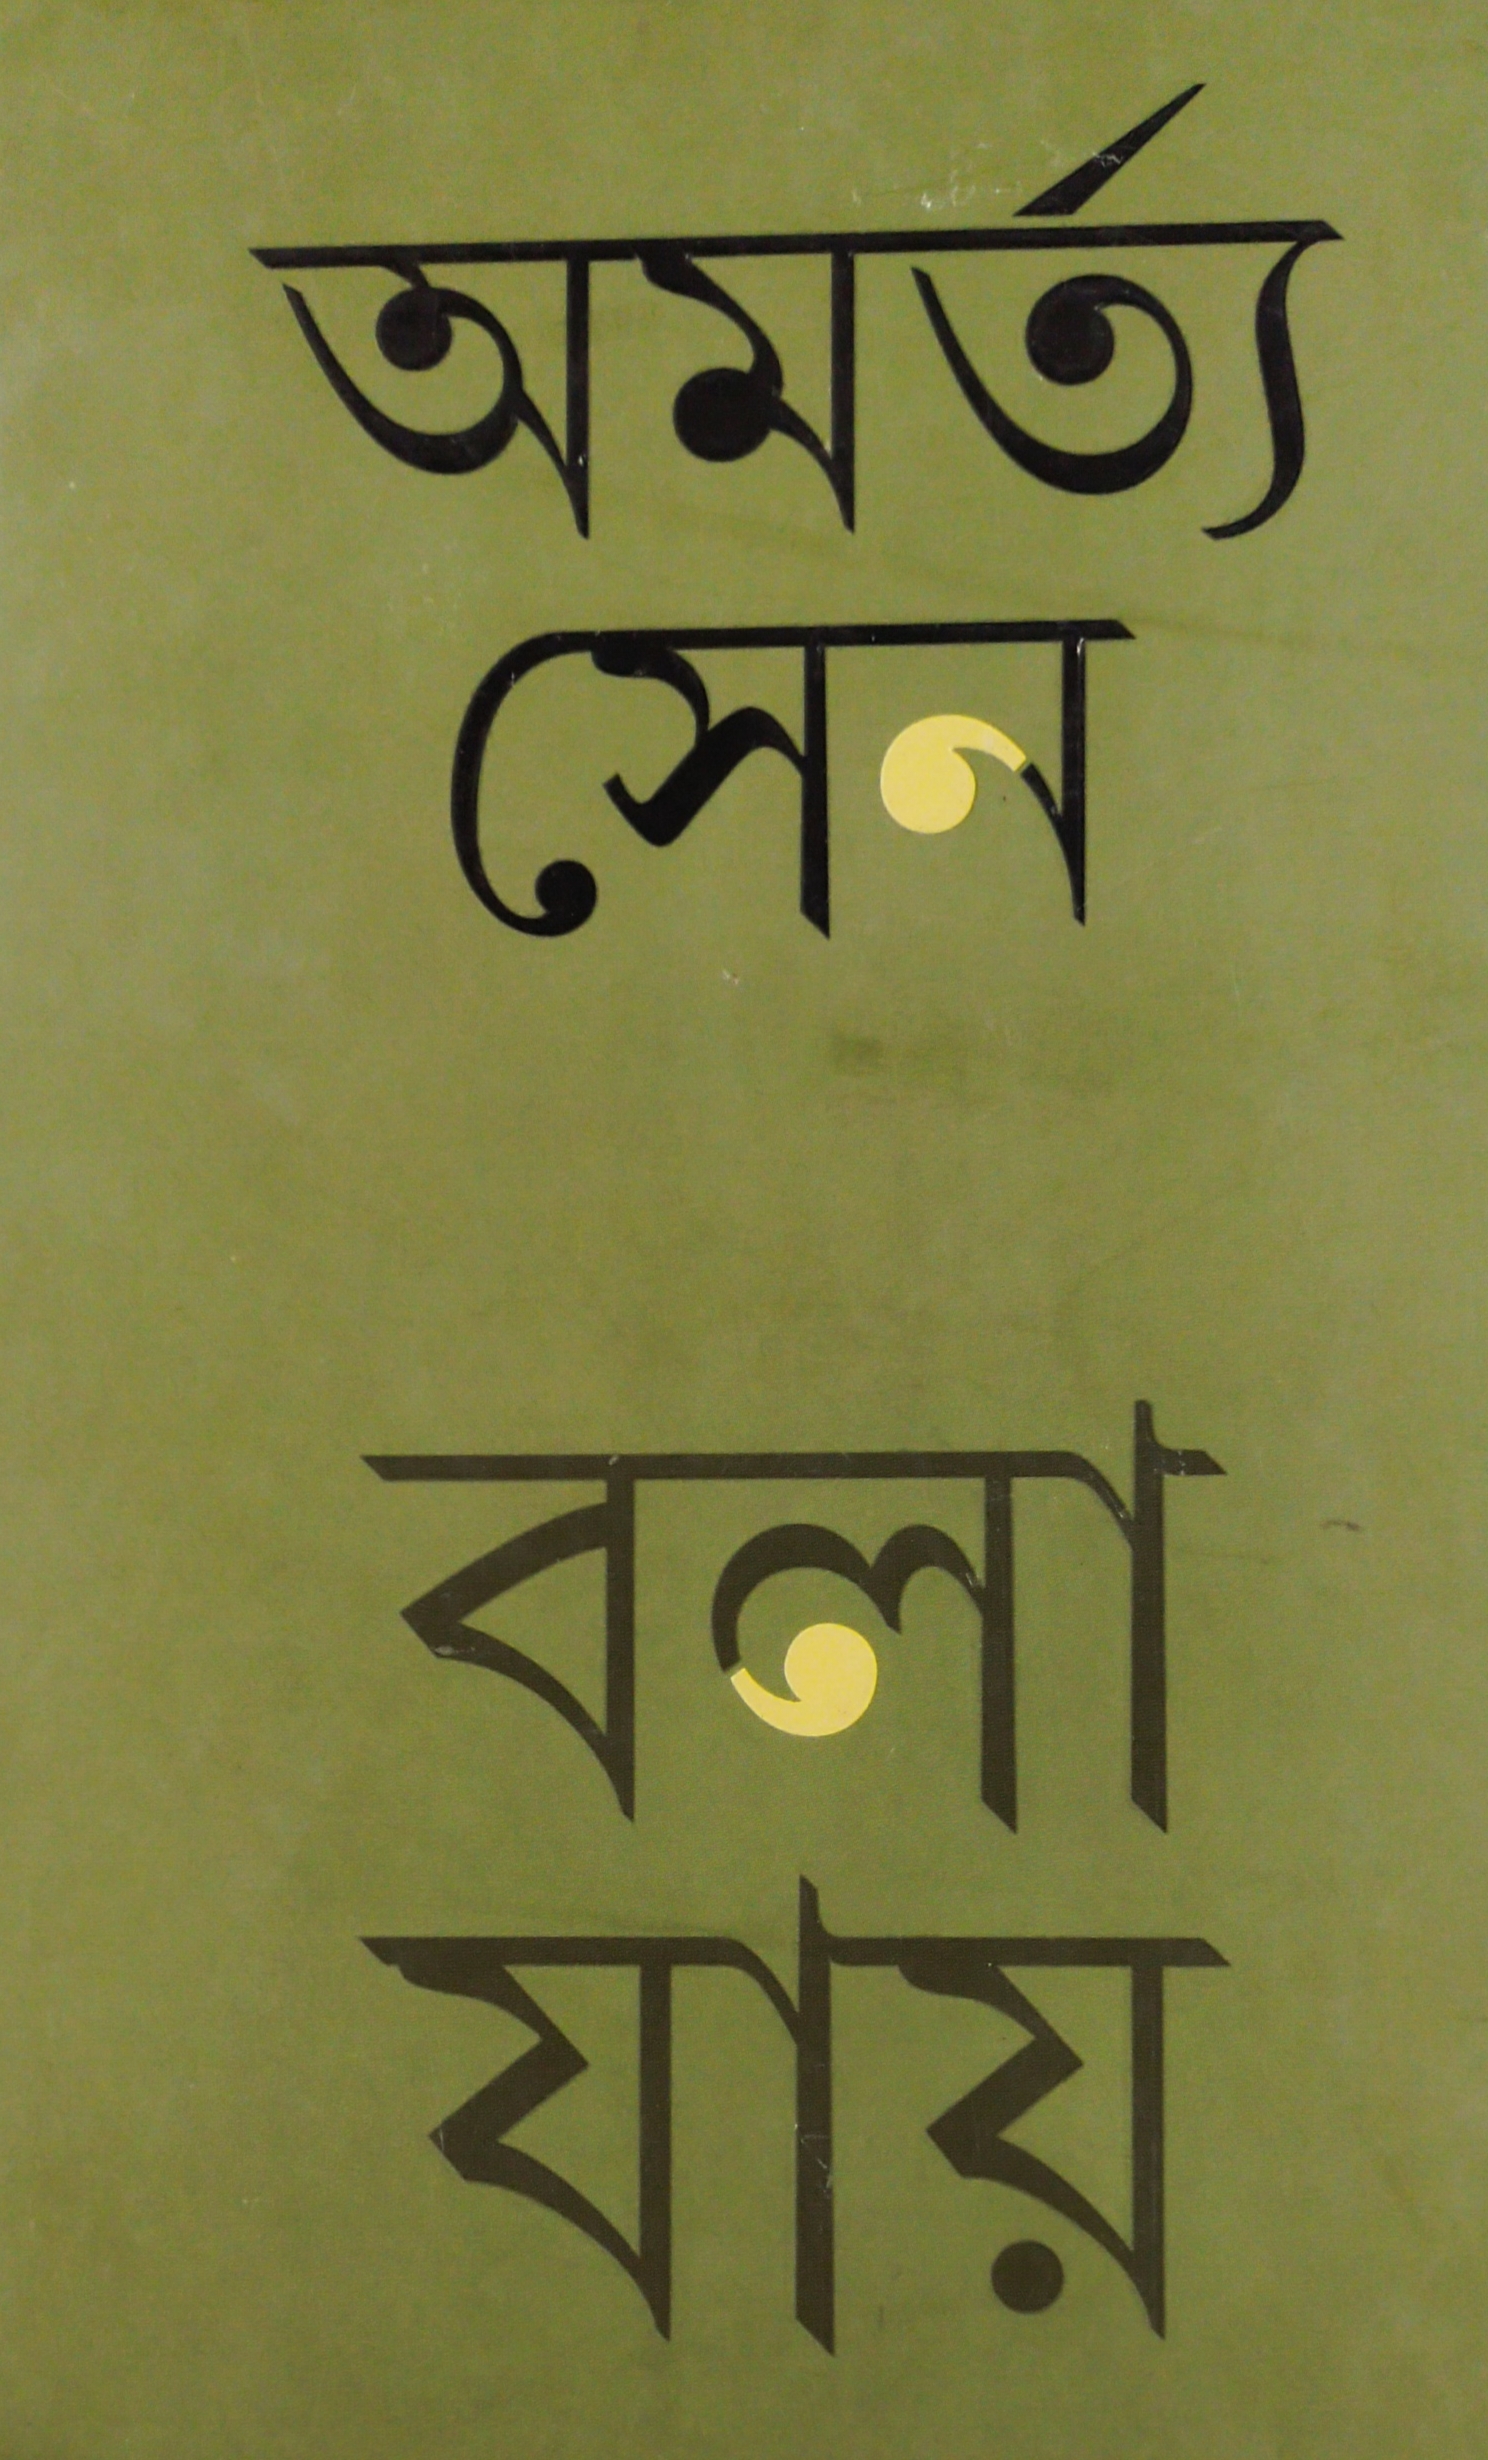 অমর্ত্য
সেন
বলা
যায়